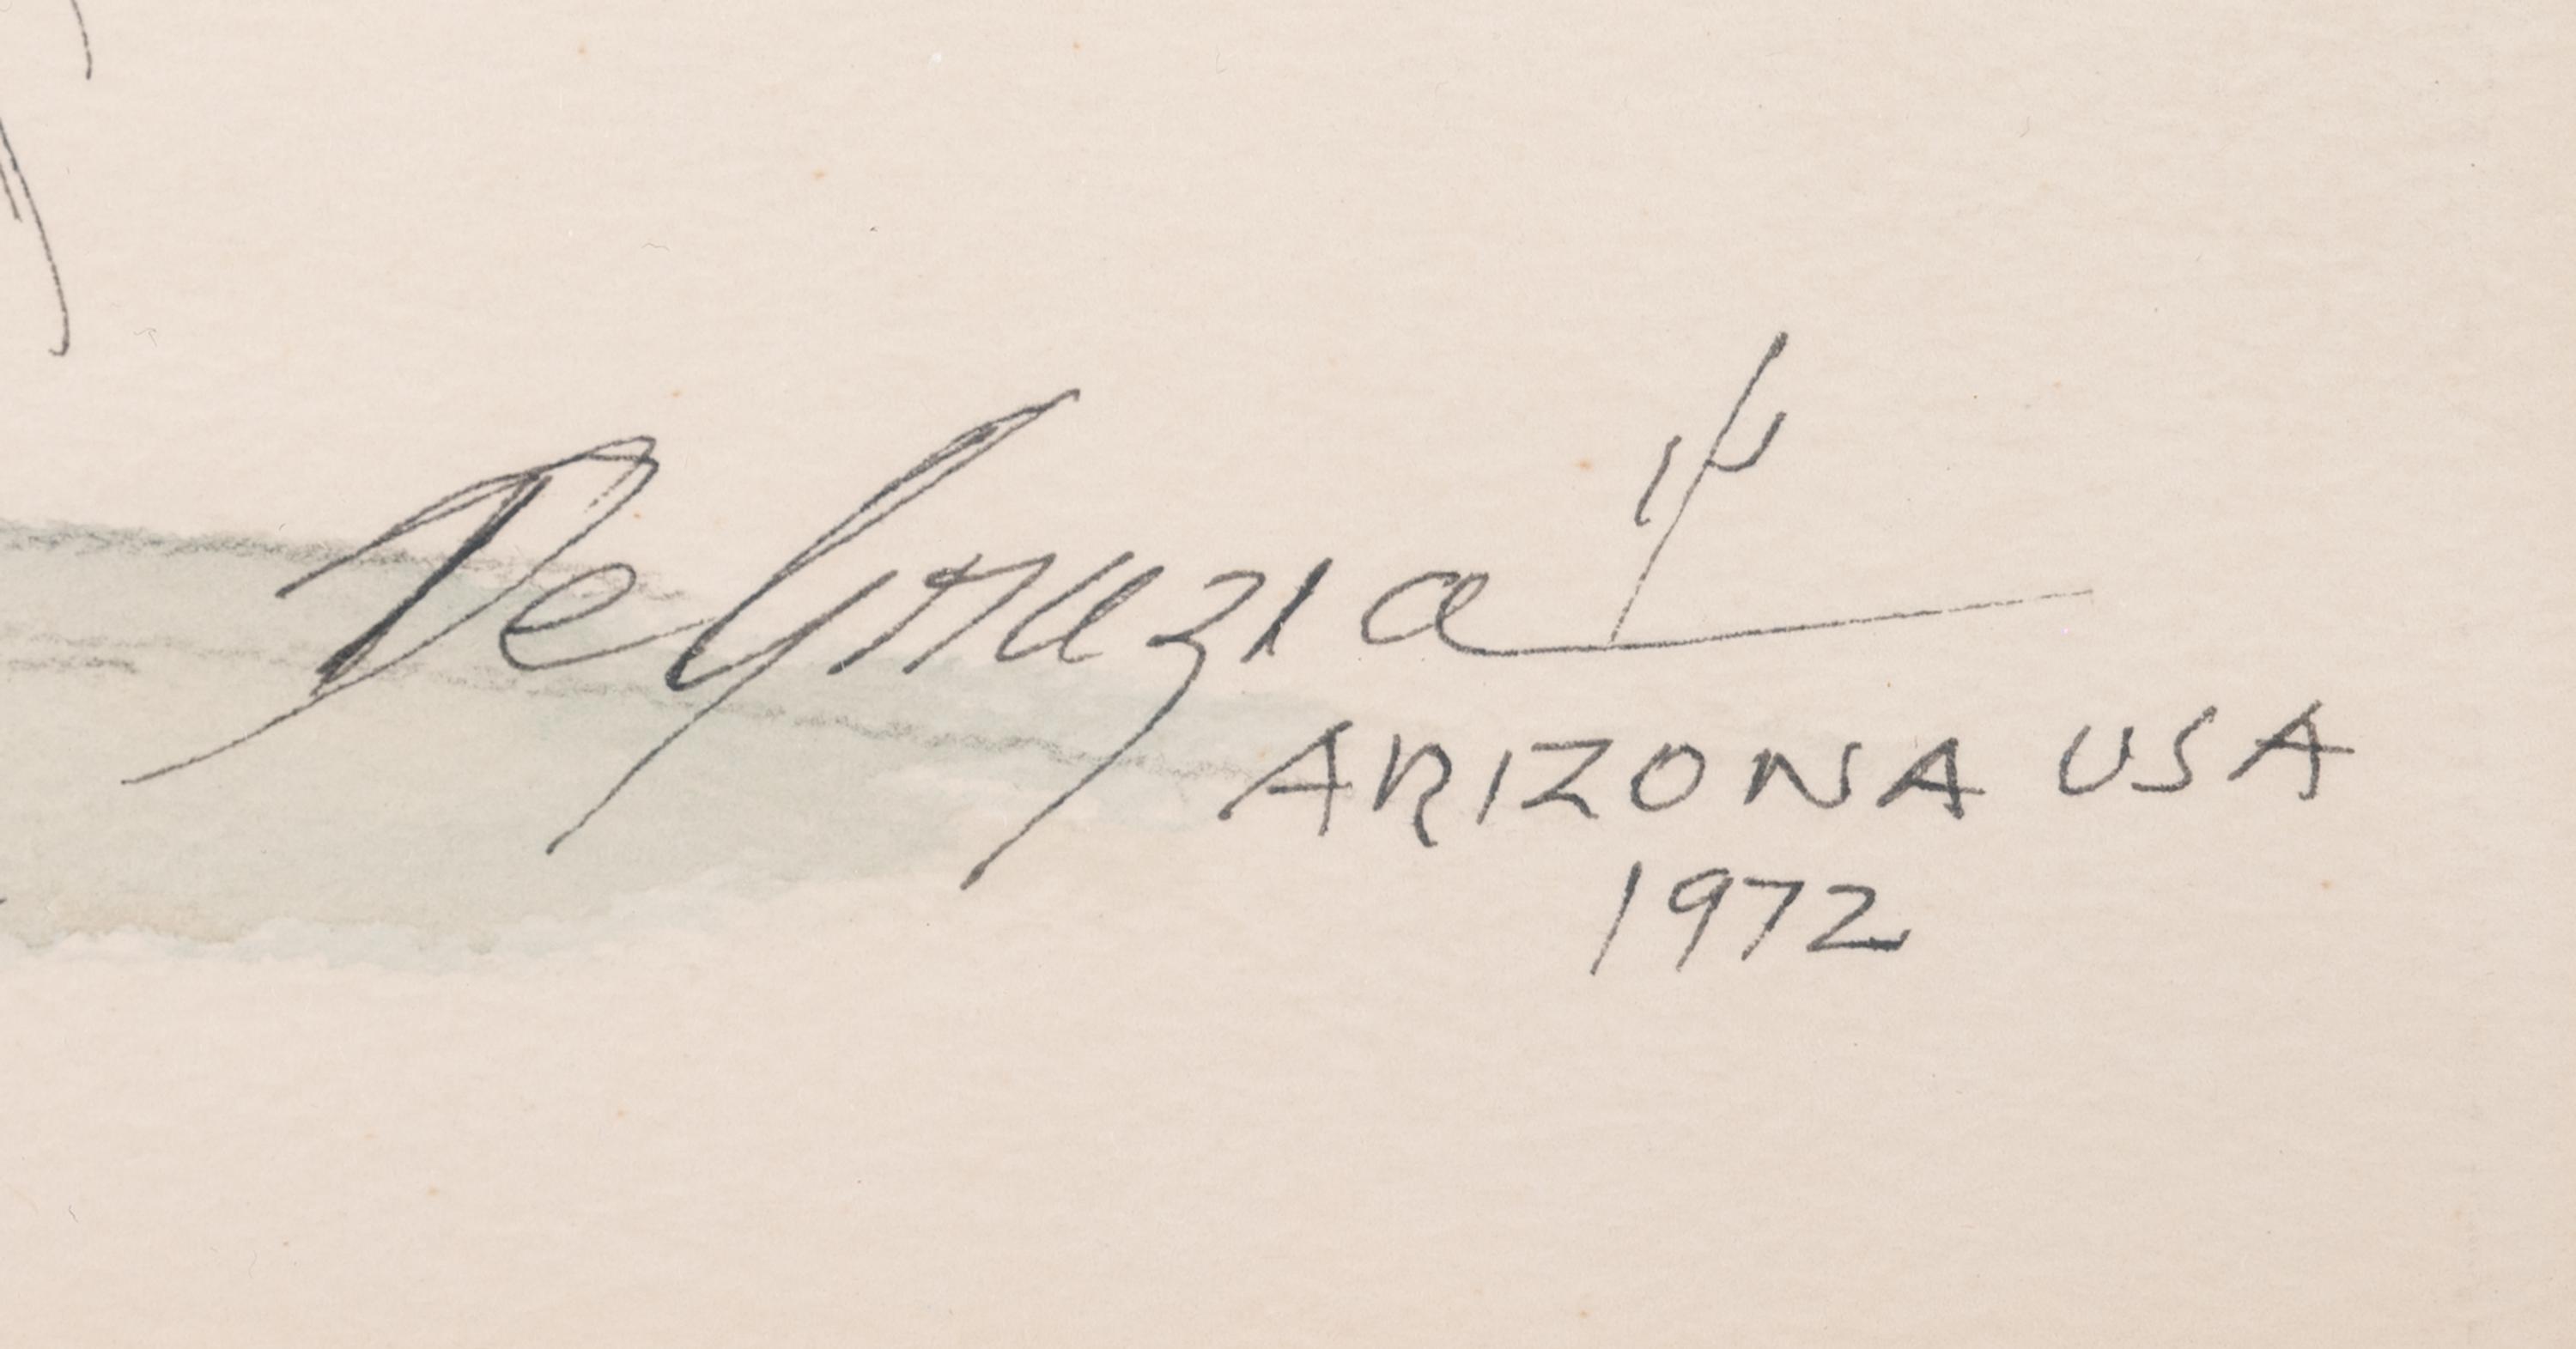 DeGrazia
ARIZONA USA
1972